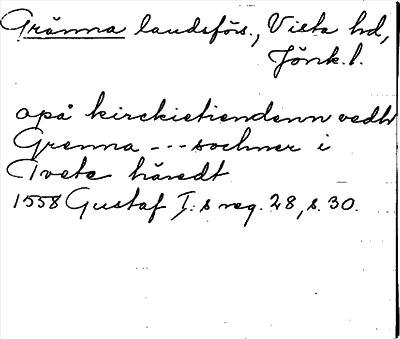 Gränna landsförs., Vista hd,
Jönk.l.
opå kirckietiendenn vedh
Grenna --- sochner i
Tvete häredt
1558 Gustaf I:s reg. 28, s. 30.